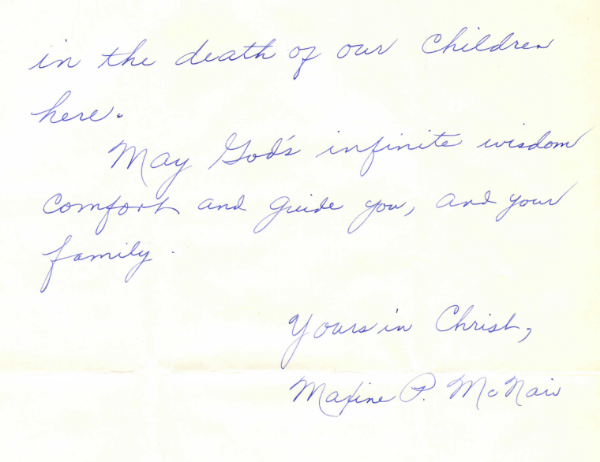 in the death of our Children
here.
May God's infinite wisdom
comfort and guide you, and your
family.
Yours in Christ,
Maxine P. McNair